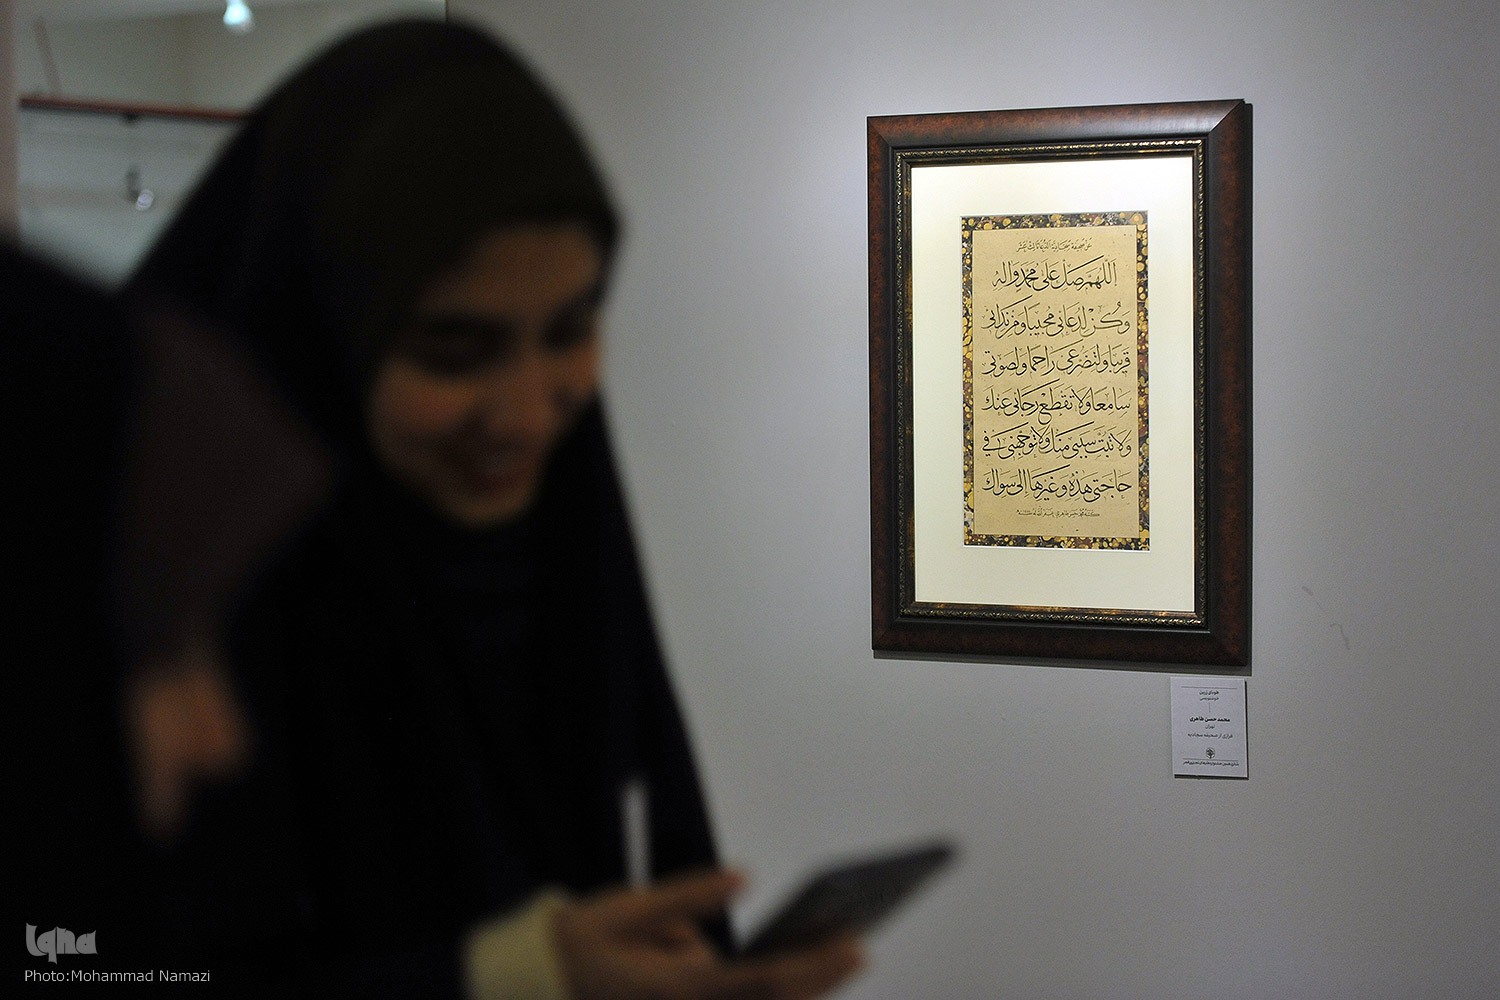 اللهم صل علی محمد واله
وكن لدعائي مجيبا ومن ندائي
قريبا ولتضرعي راحما ولصوتي
سامعا ولا تقطع رجائي عنك
ولا تبت سببي منك ولا توجهني في
حاجتي هذه وغيرها الى سواك
طوبای زرین
خوشنویسی
محمد حسن طاهری
تهران
فرازی از صحیفه سجادیه
Iqna
Photo:Mohammad Namazi